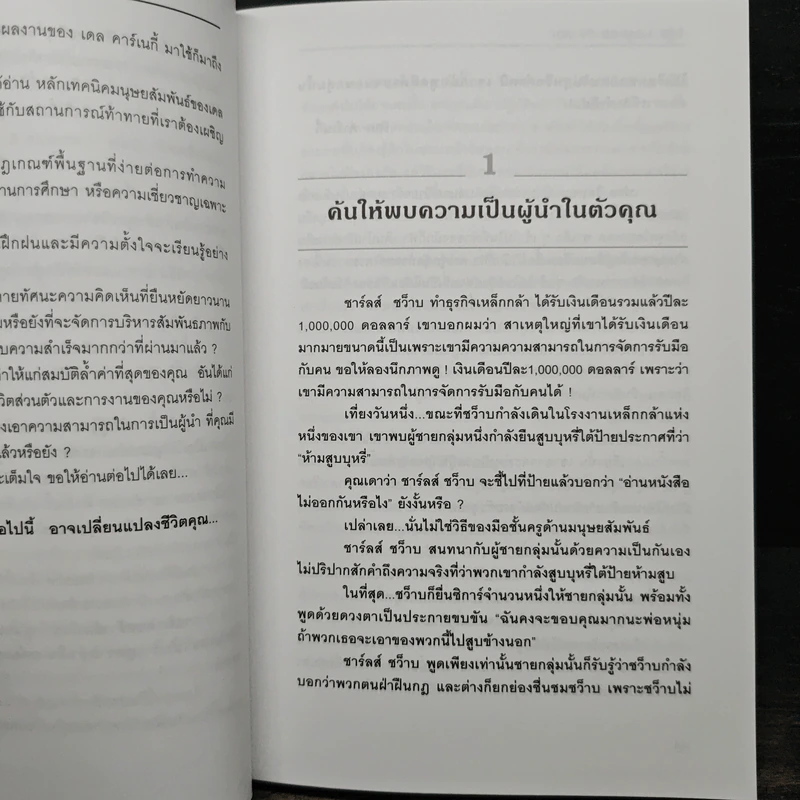 ผลงานของ เดล คาร์เนกี้ มาใช้ก็มาถึง
อ่าน หลักเทคนิคมนุษยสัมพันธ์ของเดล
ช้กับสถานการณ์ท้าทายที่เราต้องเผชิญ
ฎเกณฑ์พื้นฐานที่ง่ายต่อการทำความ
านการศึกษา หรือความเชี่ยวชาญเฉพาะ
ฝึกฝนและมีความตั้งใจจะเรียนรู้อย่าง
ายทัศนะความคิดเห็นที่ยืนหยัดยาวนาน
มหรือยังที่จะจัดการบริหารสัมพันธภาพกับ
บความสำเร็จมากกว่าที่ผ่านมาแล้ว ?
าให้แก่สมบัติล้ำค่าที่สุดของคุณ อันได้แก่
วิตส่วนตัวและการงานของคุณหรือไม่ ?
งเอาความสามารถในการเป็นผู้นำ ที่คุณมี
ล้วหรือยัง ?
ะเต็มใจ ขอให้อ่านต่อไปได้เลย...
อไปนี้ อาจเปลี่ยนแปลงชีวิตคุณ...
1
ค้นให้พบความเป็นผู้นำในตัวคุณ
ชาร์ลส์ ชว็าบ ทำธุรกิจเหล็กกล้า ได้รับเงินเดือนรวมแล้วปีละ
1,000,000 ดอลลาร์ เขาบอกผมว่า สาเหตุใหญ่ที่เขาได้รับเงินเดือน
มากมายขนาดนี้เป็นเพราะเขามีความความสามารถในการจัดการรับมือ
กับคน ขอให้ลองนึกภาพดู ! เงินเดือนปีละ1,000,000 ดอลลาร์ เพราะว่า
เขามีความสามารถในการจัดการรับมือกับคนได้ !
เที่ยงวันหนึ่ง...ขณะที่ชว็าบกำลังเดินในโรงงานเหล็กกล้าแห่ง
หนึ่งของเขา เขาพบผู้ชายกลุ่มหนึ่งกำลังยืนสูบบุหรี่ใต้ป้ายประกาศที่ว่า
“ห้ามสูบบุหรี่”
คุณเดาว่า ชาร์ลส์ ชว็าบ จะชี้ไปที่ป้ายแล้วบอกว่า “อ่านหนังสือ
ไม่ออกกันหรือไง” ยังงั้นหรือ ?
เปล่าเลย...นั่นไม่ใช่วิธีของมือชั้นครูด้านมนุษยสัมพันธ์
ชาร์ลส์ ชว็าบ สนทนากับผู้ชายกลุ่มนั้นด้วยความเป็นกันเอง
ไม่ปริปากสักคำถึงความจริงที่ว่าพวกเขากำลังสูบบุหรี่ใต้ป้ายห้ามสูบ
ในที่สุด...ชว็าบก็ยื่นซิการ์จำนวนหนึ่งให้ชายกลุ่มนั้น พร้อมทั้ง
พูดด้วยดวงตาเป็นประกายขบขัน “ฉันคงจะขอบคุณมากนะพ่อหนุ่ม
ถ้าพวกเธอจะเอาของพวกนี้ไปสูบข้างนอก”
ชาร์ลส์ ชว็าบ พูดเพียงเท่านั้นชายกลุ่มนั้นก็รับรู้ว่าชว็าบกำลัง
บอกว่าพวกตนฝ่าฝืนกฎ และต่างก็ยกย่องชื่นชมชว็าบ เพราะชว็าบไม่